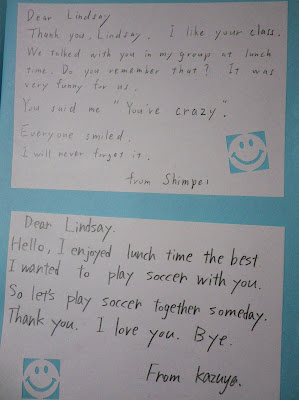 Dear Lindsay
Thank you, Lindsay. I like your class.
We talked with you in my group at lunch
time. Do you remember that? It was
very funny for us.
You said me "You've crazy".
Everyone smiled.
I will never forget it.
from Shimpei
Dear Lindsay.
Hello, I enjoyed lunch time the best.
I wanted to play soccer with you.
So let's play soccer together someday.
Thank you. I love you. Bye.
From Kazuya.